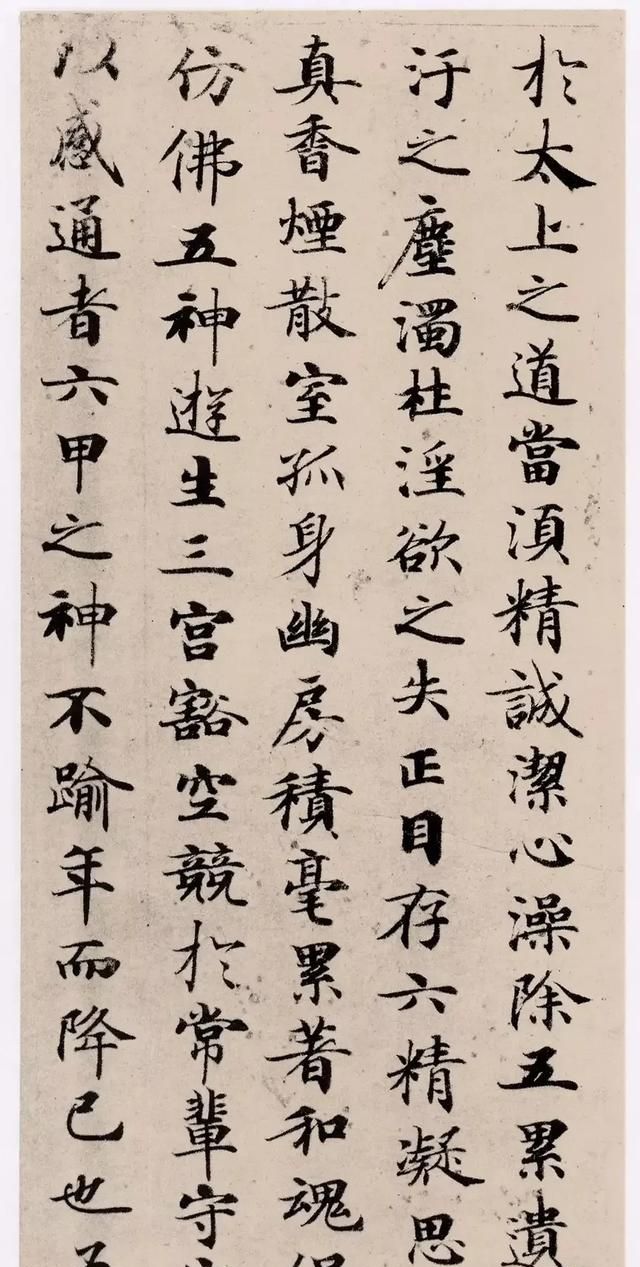 於太上之道當湏精誠潔心澡除五累遺
汙之塵濁杜淫欲之失正目存六精凝思
真香煙散室孤身幽房積毫累著和魂
仿佛五神遊生三宫豁空競於常輩守
以感通者六甲之神不踰年而降己也